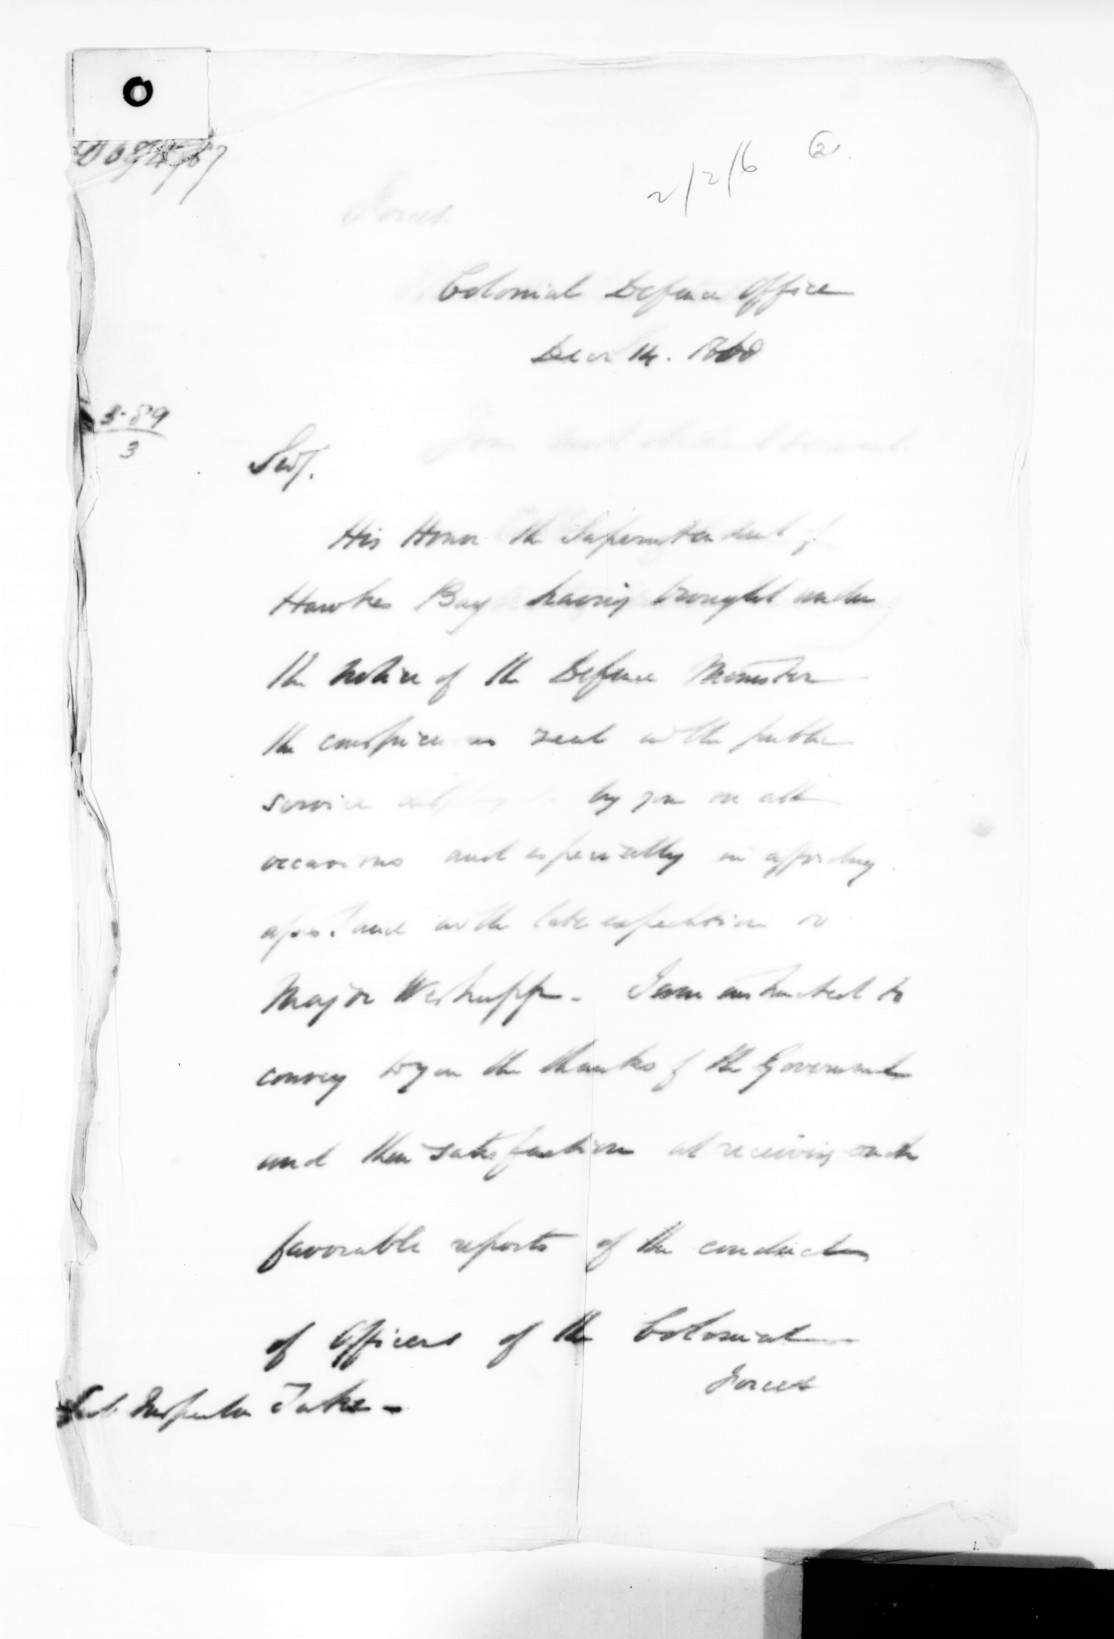 2/2/6
Colonial Defence Office
Decr 14. 1868
3.89
3
Sir,
His Honor the Superintendent of
Hawkes Bay having brought under
the notice of the Defence Minister
the conspicuous zeal in the public
service by you on all
occasions and especially in affording
assistance in the late expedition
Major I am instructed to
convey to you the thanks of the Government
and their satisfaction at receiving such
favorable reports of the conduct
of Officers of the Colonial
Forces
Sub Inspector